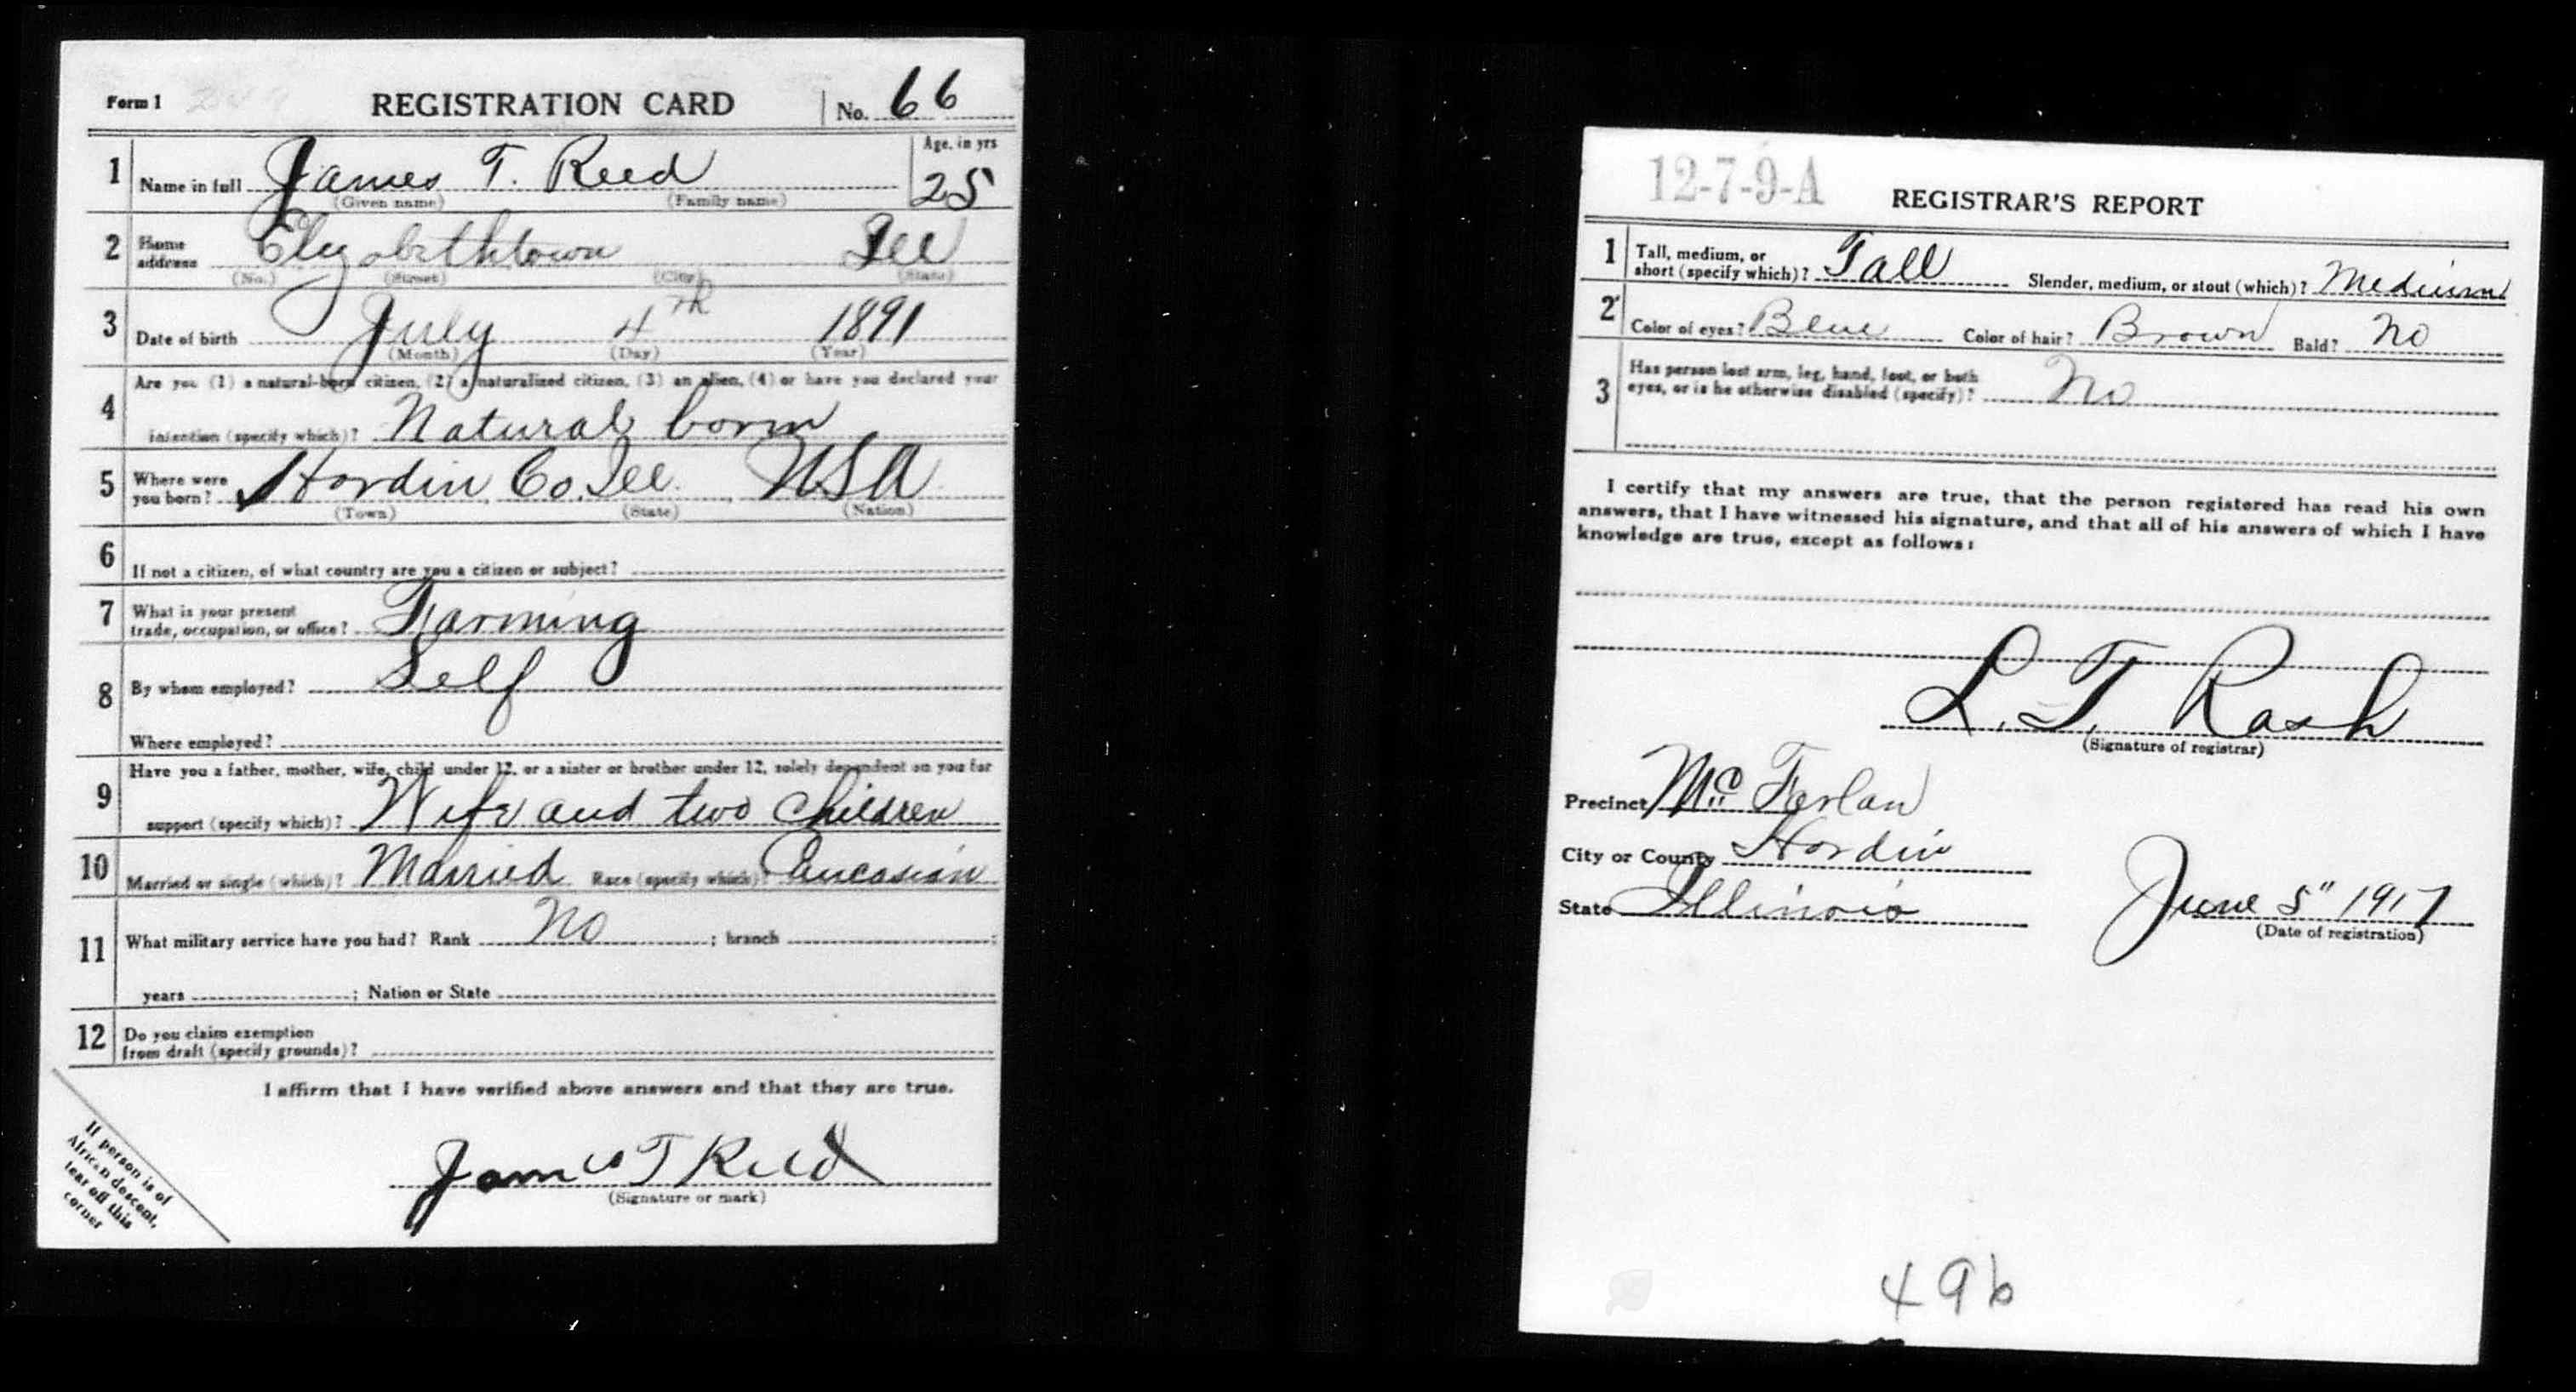 Form 1 REGISTRATION CARD No. 66
1 Name in full James T. Reed Age, in yrs 25
(Given name) (Family name)
2 Home address Elizabethtown Ill
(No.) (Street) (City) (State)
3 Date of birth July 4th 1891
(Month) (Day) (Year)
Are you (1) a natural-born citizen, (2) a naturalized citizen, (3) an alien, (4) or have you declared your
4 intention (specify which)? Natural born
5 Where were you born? Hardin Co. Ill. USA
(Town) (State) (Nation)
6 If not a citizen, of what country are you a citizen or subject?
7 What is your present trade, occupation, or office? Farming
8 By whom employed? Self
Where employed?
Have you a father, mother, wife, child under 12, or a sister or brother under 12, solely dependent on you for
9 support (specify which)? Wife and two children
10 Married or single (which)? Married Race (specify which)? Caucasian
11 What military service have you had? Rank No ; branch ;
years ; Nation or State
12 Do you claim exemption
from draft (specify grounds)?
I affirm that I have verified above answers and that they are true.
James T Reed
(Signature or mark)
If person is of
African descent,
tear off this
corner
12-7-9-A
REGISTRAR'S REPORT
1 Tall, medium, or short (specify which)? Tall Slender, medium, or stout (which)? Medium
2 Color of eyes? Blue Color of hair? Brown Bald? No
3 Has person lost arm, leg, hand, foot, or both
eyes, or is he otherwise disabled (specify)? No
I certify that my answers are true, that the person registered has read his own
answers, that I have witnessed his signature, and that all of his answers of which I have
knowledge are true, except as follows:
L. T. Rash
(Signature of registrar)
Precinct McFarlan
City or County Hardin
State Illinois June 5" 1917
(Date of registration)
496